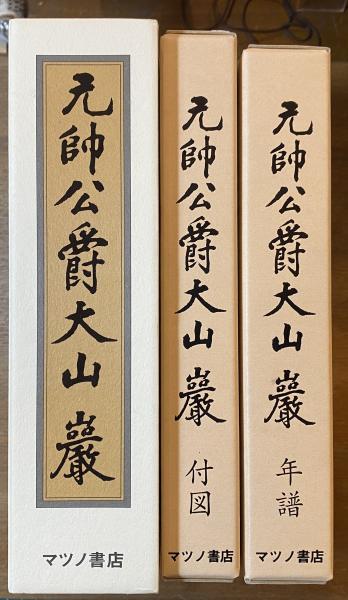 元帥公爵大山巌
マツノ書店
元帥公爵大山巌
付図
マツノ書店
元帥公爵大山巌
年譜
マツノ書店